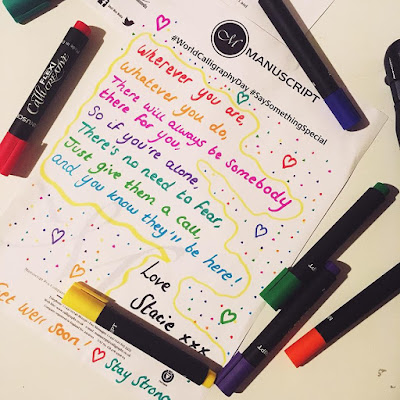 M MANUSCRIPT
#WorldCalligraphyDay #SaySomethingSpecial
FLEXI
Callicreative
Wherever you are,
Whatever you do,
There will always be somebody
there for you,
So if you're alone,
There's no need to fear,
Just give them a call,
and you know they'll be here!
Love
Stacie xxx
Get well soon!
Stay Strong